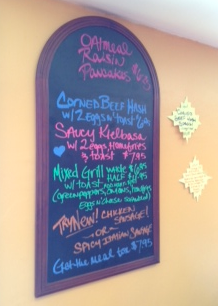 Oatmeal
Raisin
Pancakes
Corned Beef Hash
w/2 eggs n' toast $6.95
Saucy Kielbasa
w/2 eggs, homefries
& toast $7.95
Mixed Grill whole $6.95
w/toast HALF
(Green peppers, onions, homefries
Eggs n' cheese
Try New! Chicken
Sausage!
OR
Spicy Italian Sausage
Get the Meal too $7.95